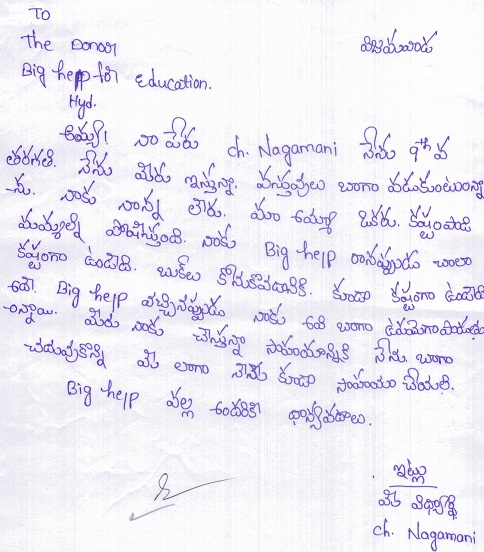 TO
The Donor విజయవాడ
Big help for Education.
Hyd.
అమ్మా! నా పేరు ch. Nagamani నేను 9th వ
తరగతి. నేను మీరు ఇస్తున్నా వస్తువులు బాగా వడుకుంటున్నా
-ను. నాకు నాన్న లేరు. మా అమ్మా ఒకరు. కష్టంపాడి
మమ్మల్ని పోషిస్తుంది. నాకు Big help రానప్పుడు చాలా
కష్టంగా ఉండేది. బుక్‌లు కొనుకోవడానికి. కూడా కష్టంగా ఉండేది
ఇది. Big help వచ్చినప్పుడు నాకు అది బాగా
అన్నాయి. మీరు నాకు చేస్తున్నా సాహయాన్నికి నేను బాగా
చదువుకొన్ని మీ లాగా నేను కూడా సాహయం చేయలి.
Big help వల్ల అందరికి ధాన్యవదాలు.
ఇట్లు
మీ విధ్యార్థి
ch. Nagamani